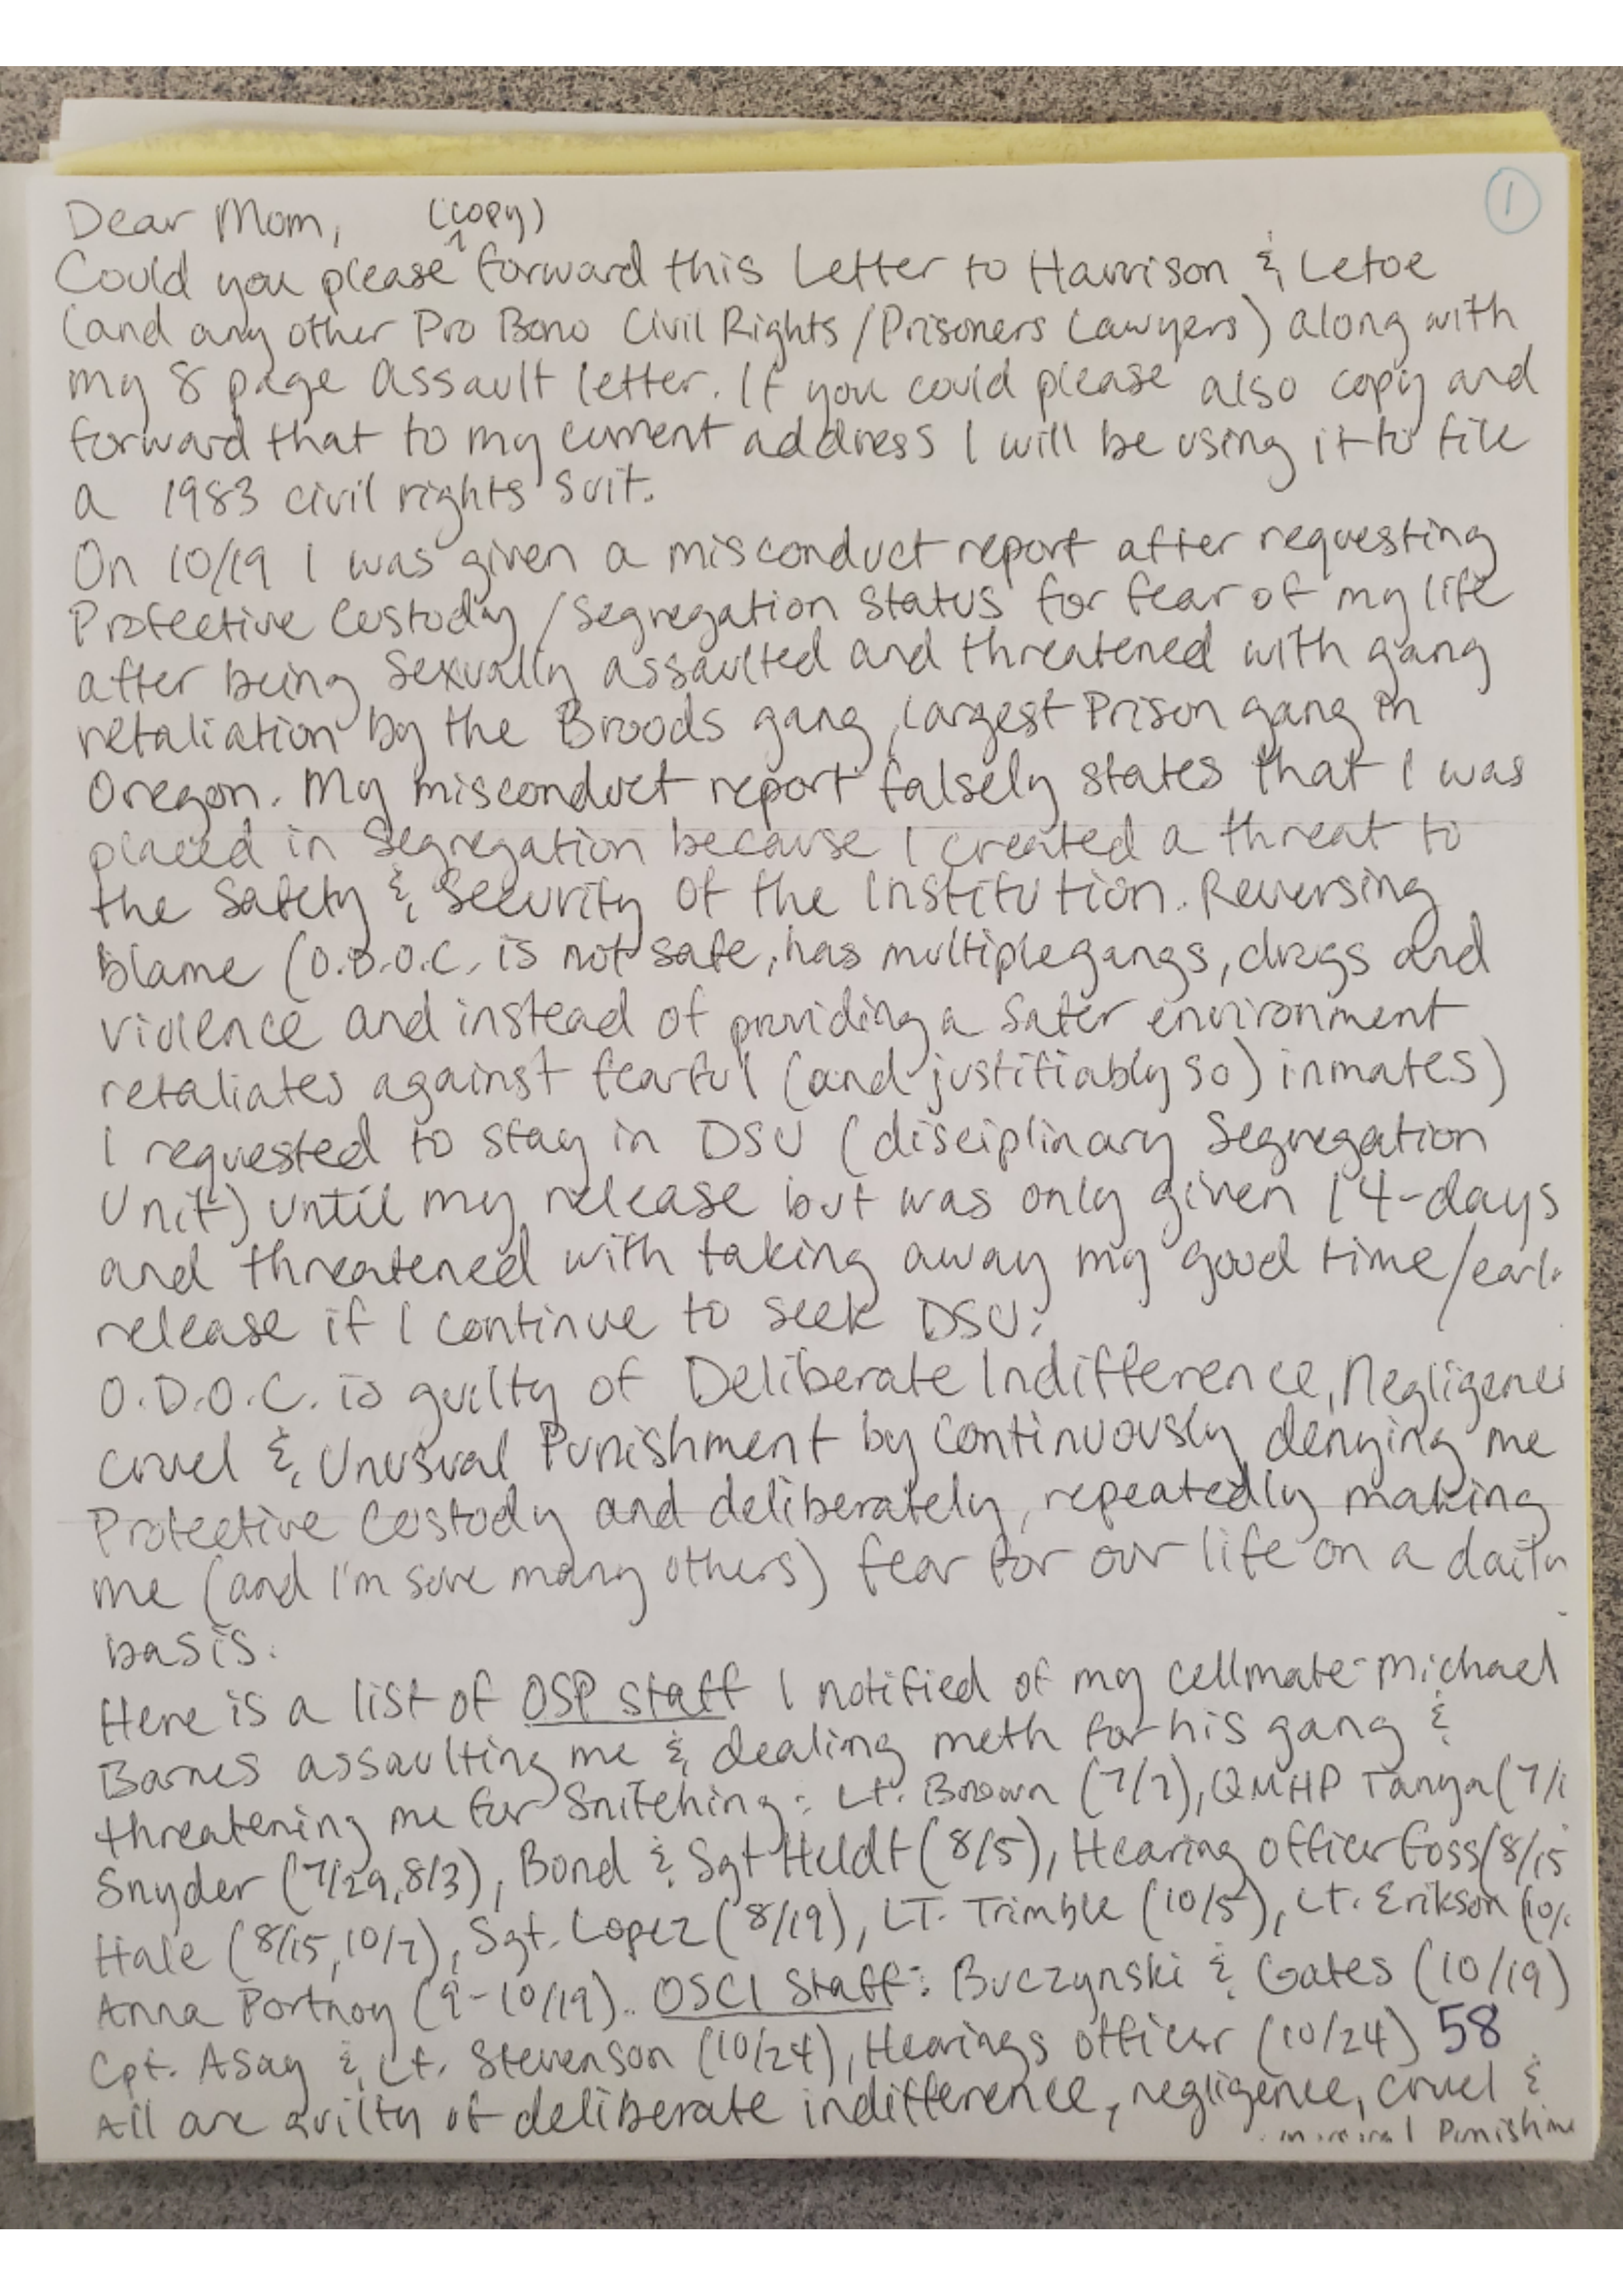 1
Dear Mom, (copy)
Could you please ^ forward this Letter to Harrison & Letoe
(and any other Pro Bono Civil Rights/Prisoners Lawyers) along with
my 8 page Assault letter. If you could please also copy and
forward that to my current address I will be using it to file
a 1983 civil rights suit.
On 10/19 I was given a misconduct report after requesting
Protective Custody/Segregation Status for fear of my life
after being sexually assaulted and threatened with gang
retaliation by the Broods gang, largest Prison gang in
Oregon. My misconduct report falsely states that I was
placed in Segregation because I created a threat to
the Safety & Security of the Institution. Reversing
blame (O.D.O.C. is not safe, has multiple gangs, drugs and
violence and instead of providing a safer environment
retaliates against fearful (and justifiably so) inmates)
I requested to stay in DSU (disciplinary Segregation
Unit) until my release but was only given 14-days
and threatened with taking away my good time/earl
release if I continue to seek DSU.
O.D.O.C. is guilty of Deliberate Indifference, Negligence
Cruel & Unusual Punishment by continuously denying me
Protective Custody and deliberately, repeatedly making
me (and I'm sure many others) fear for our life on a daily
basis.
Here is a list of OSP staff I notified of my cellmate-Michael
Barnes assaulting me & dealing meth for his gang &
threatening me for Snitching: Lt. Brown (7/7), QMHP Tanya (7/
Snyder (7/29, 8/3), Bond & Sgt Heldt (8/5), Hearing officer Foss (8/15
Hale (8/15, 10/7), Sgt. Lopez (8/19), LT. Trimble (10/5), Lt. Erikson (10/
Anna Portnoy (9-10/19). OSCI Staff: Buczynski & Gates (10/19)
Cpt. Asay & Lt. Stevenson (10/24), Hearings officer (10/24) 58
All are guilty of deliberate indifference, negligence, cruel &
Punishme